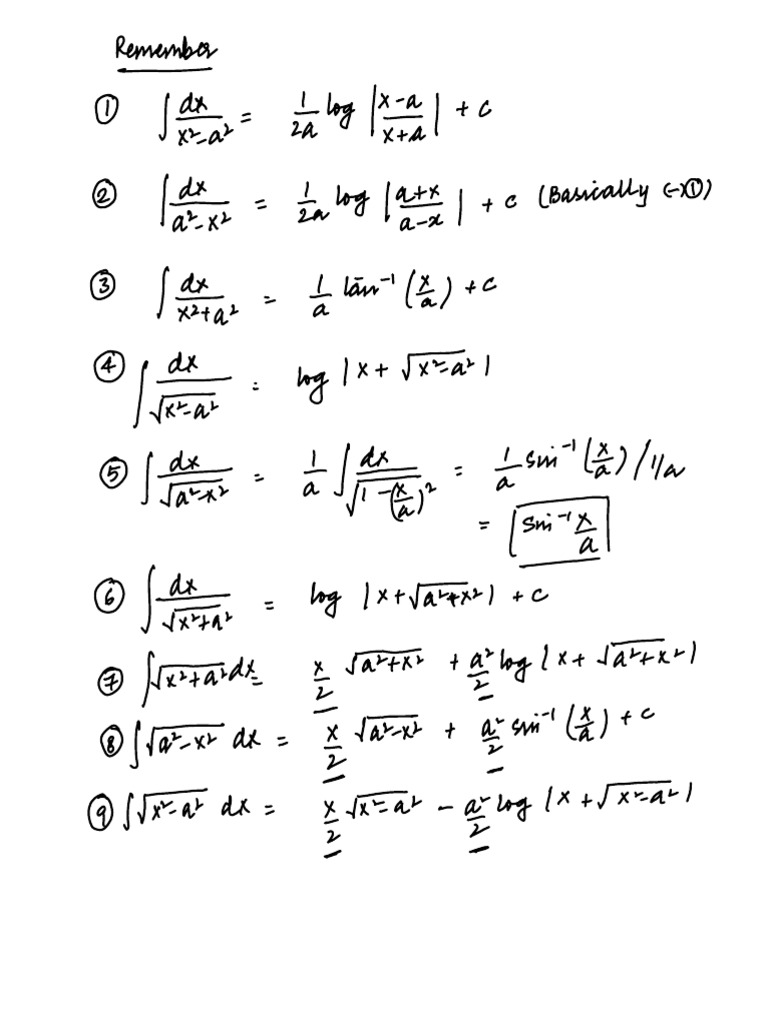 Remember
① ∫ dx/(x²-a²) = 1/2a log |(x-a)/(x+a)| + c
② ∫ dx/(a²-x²) = 1/2a log |(a+x)/(a-x)| + c (Basically (-)①)
③ ∫ dx/(x²+a²) = 1/a tan⁻¹ (x/a) + c
④ ∫ dx/√(x²-a²) = log |x + √(x²-a²)|
⑤ ∫ dx/√(a²-x²) = 1/a ∫ dx/√(1-(x/a)²) = 1/a sin⁻¹ (x/a) / 1/a
= sin⁻¹ x/a
⑥ ∫ dx/√(x²+a²) = log |x+√(a²+x²)| + c
⑦ ∫√(x²+a²) dx = x/2 √(a²+x²) + a²/2 log |x + √(a²+x²)|
⑧ ∫√(a²-x²) dx = x/2 √(a²-x²) + a²/2 sin⁻¹ (x/a) + c
⑨ ∫√(x²-a²) dx = x/2 √(x²-a²) - a²/2 log |x + √(x²-a²)|